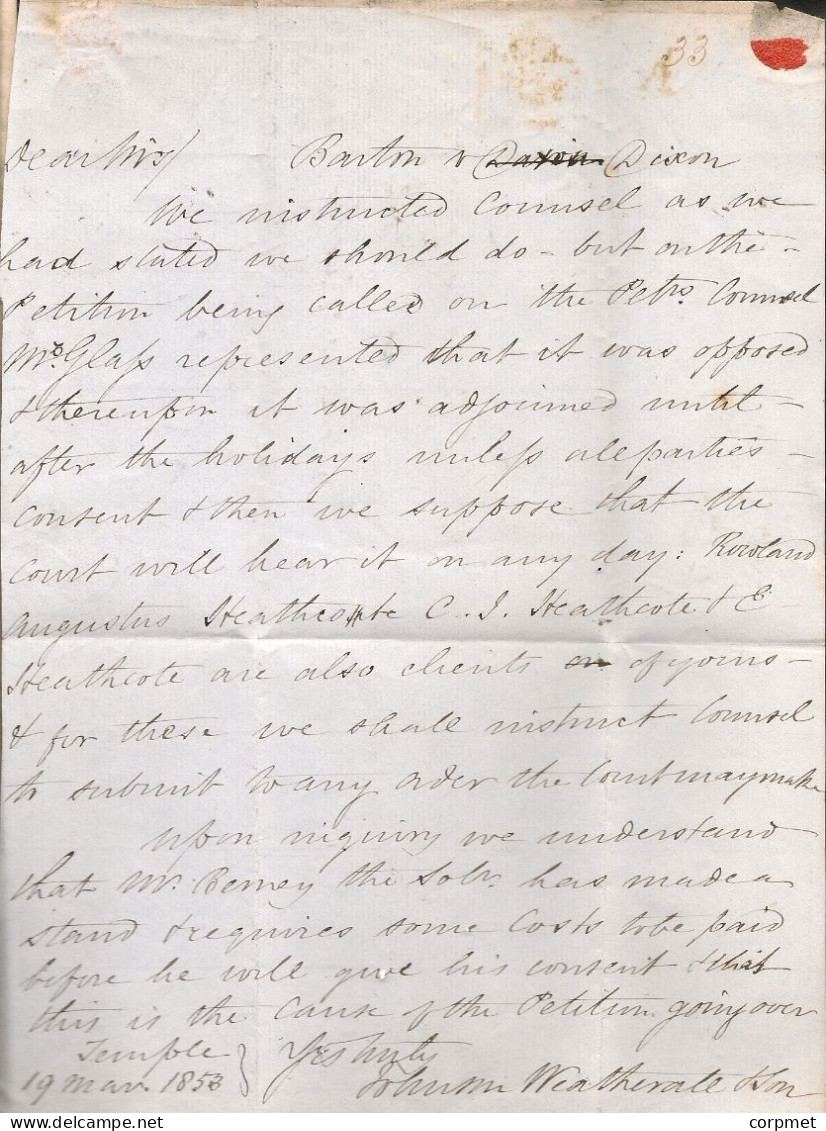 33
Dear Sirs/ Barton v Daxon Dixon
We instructed Counsel as we
had stated we should do - but on the -
Petition being called on the Petrs. Counsel
Mr. Glass represented that it was opposed
& thereupon it was adjourned until -
after the holidays unless all parties -
consent & then we suppose that the
Court will hear it on any day: Rowland
Augustus Heathcote C. J. Heathcote & E
Heathcote are also clients of yours -
& for these we shall instruct Counsel
to submit to any order the Court may make
Upon inquiry we understand
that Mr. Berney the Solr. has made a
stand & requires some Costs to be paid
before he will give his consent & that
this is the cause of the Petition going over
Temple
19 Mar. 1853
Yrs truly
Johnson Weatherall & Son
carpmet